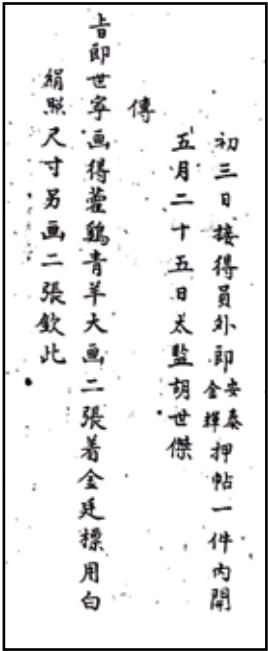 初三日接得員外郎安泰金輝押帖一件內開
五月二十五日太監胡世傑
傳
旨郎世寧画得藿鷄青羊大画二張着金廷標用白
絹照尺寸另画二張欽此